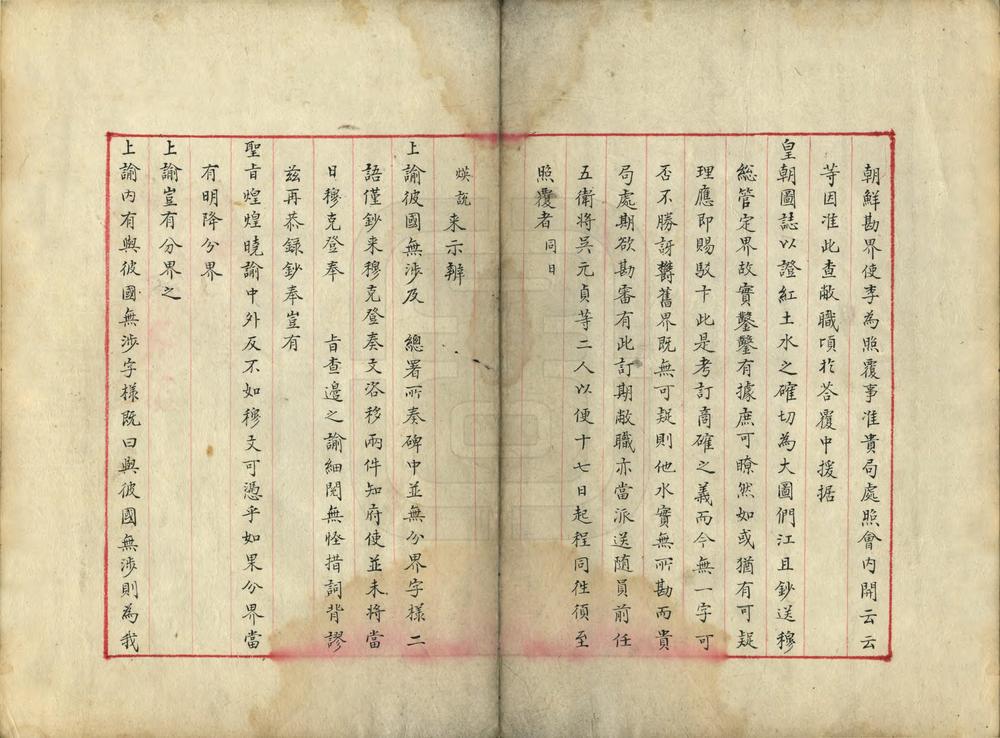 朝鮮勘界使李為照覆事准貴局處照會內開云云
等因准此查敝職頃於荅覆中援据
皇朝圖誌以證紅土水之確切為大圖們江且鈔送穆
総管定界故實鑿鑿有據庶可暸然如或猶有可疑
理應即賜駁卞此是考訂商確之義而今無一字可
否不勝訝欝舊界既無可疑則他水實無所勘而貴
局處期欲勘審有此訂期敝職亦當派送随員前任
五衛將吳元貞等二人以便十七日起程同徃須至
照覆者 同日
煐說 来示辨
上諭彼國無涉及 總署所奏碑中並無分界字樣二
語僅鈔来穆克登奏文洛移兩件知府使並未將當
日穆克登奉 旨查邊之諭細閱無怪措詞背謬
茲再恭録鈔奉豈有
聖旨煌煌曉諭中外反不如穆文可憑乎如果分界當
有明降分界
上諭豈有分界之
上諭內有與彼國無涉字樣既曰與彼國無涉則為我